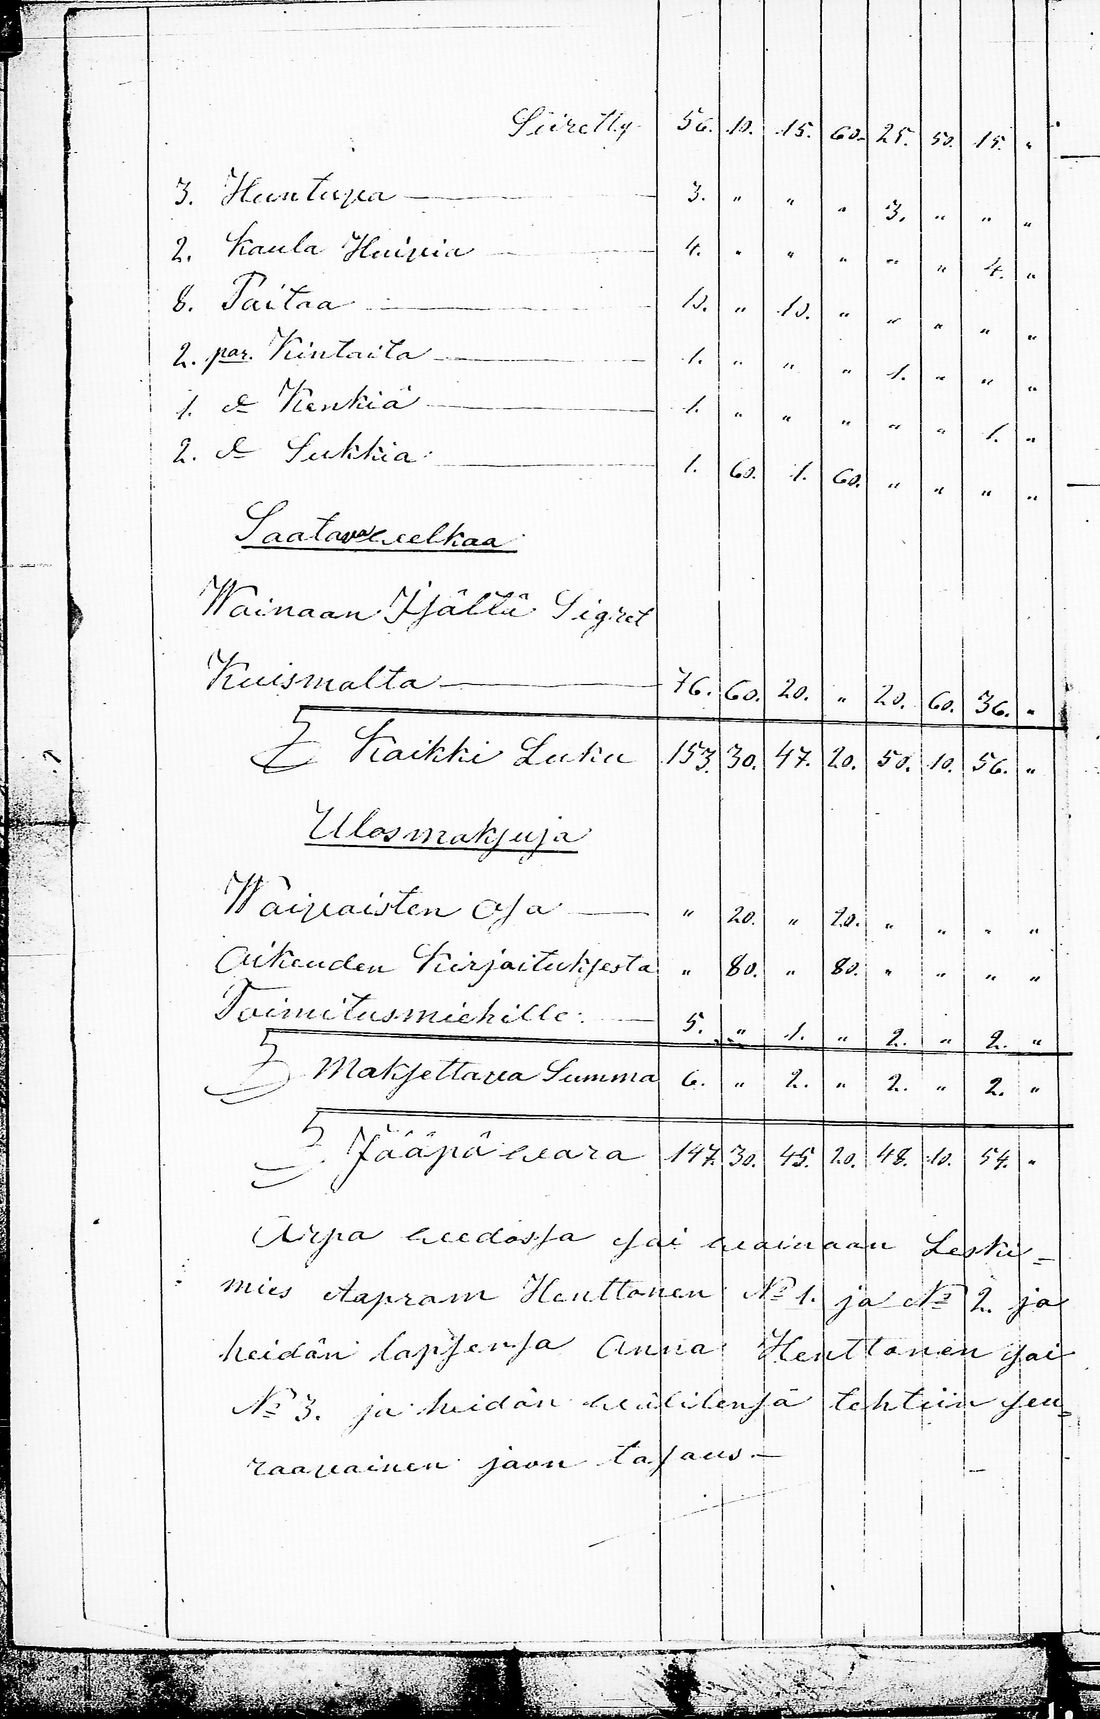 Siiretty 56. 10. 15. 60. 25. 50. 15. "
3. Huntupa 3. " " " 3. " " "
2. Kaula Huivia 4. " " " " " 4. "
8. Paitaa 10. " 10. " " " " "
2. par. Kintaita 1. " " " 1. " " "
1. d:o Kenkiä 1. " " " " " 1. "
2. d:o Sukkia 1. 60. 1. 60. " " " "
Saatava welkaa
Wainaan Isältä Sigret
Kuismalta 76. 60. 20. " 20. 60. 36. "
Kaikki Luku 153. 30. 47. 20. 50. 10. 56. "
Ulosmaksuja
Waivaisten osa " 20. " 20. " " " "
Oikeuden Kirjoituksesta " 80. " 80. " " " "
Toimitusmiehille 5. " 1. " 2. " 2. "
Maksettava Summa 6. " 2. " 2. " 2. "
Jääpä wara 147. 30. 45. 20. 48. 10. 54. "
Arpa wedossa sai wainaan Leski=
mies Aapram Henttonen No 1. ja No 2. ja
heidän lapsensa Anna Henttonen sai
No 3. ja heidän wälilensä tehtiin seu=
raavainen jaon tapaus.—